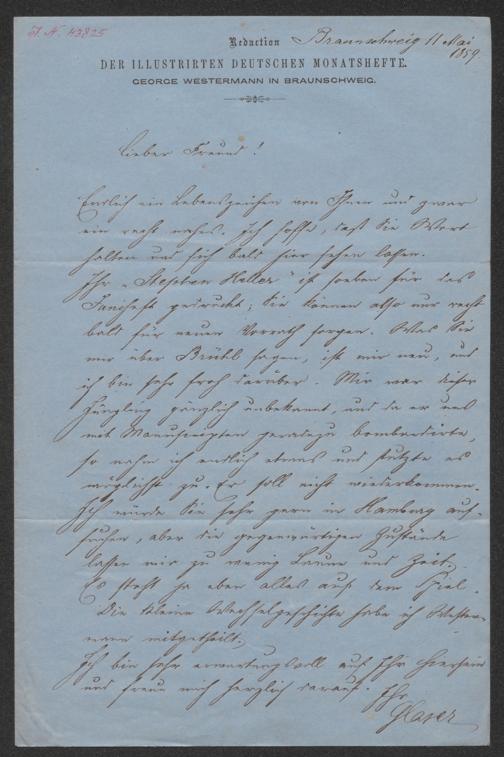 I. N. 43825
Redaction Braunschweig 11 Mai
1859.
DER ILLUSTRIRTEN DEUTSCHEN MONATSHEFTE.
GEORGE WESTERMANN IN BRAUNSCHWEIG.
Lieber Freund!
Endlich ein Lebenszeichen von Ihnen und zwar
ein recht nahes. Ich hoffe, daß Sie Wort
halten und sich bald hier sehen lassen.
Ihr „Stephan Heller" ist soeben für das
Juniheft gedruckt; Sie können also nur recht
bald für neuen Vorrath sorgen. Was Sie
mir über Brühl sagen, ist mir neu, und
ich bin sehr froh darüber. Mir war dieser
Jüngling gänzlich unbekannt, und da er uns
mit Manuscripten geradezu bombardirte,
so nahm ich endlich etwas und stutzte es
möglichst zu. Er soll nicht wiederkommen.
Ich würde Sie sehr gern in Hamburg auf-
suchen, aber die gegenwärtigen Zustände
lassen mir zu wenig Laune und Zeit.
Es steht ja eben alles auf dem Spiel.
Die kleine Wechselgeschichte habe ich Wester-
mann mitgetheilt.
Ich bin sehr erwartungsvoll auf Ihr Hiersein
und freue mich herzlich darauf. Ihr
Glaser